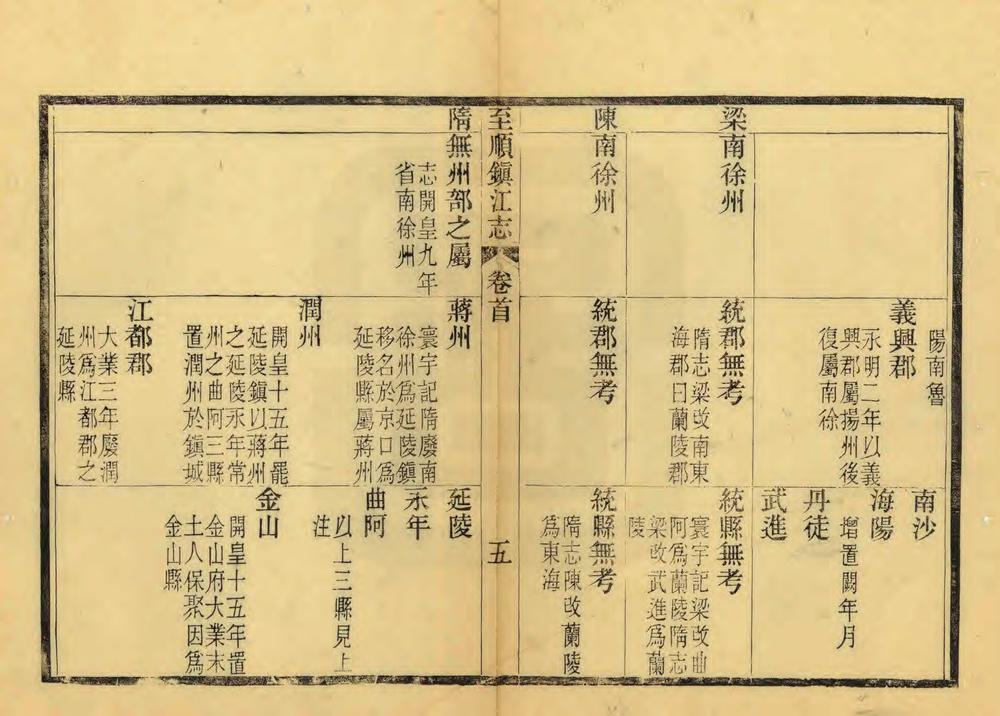 陽南魯
義興郡
永明二年以義
興郡屬揚州後
復屬南徐
南沙
海陽
增置闕年月
丹徒
武進
梁南徐州
統郡無考
隋志梁改南東
海郡曰蘭陵郡
統縣無考
寰宇記梁改曲
阿爲蘭陵隋志
梁改武進爲蘭
陵
陳南徐州
統郡無考
統縣無考
隋志陳改蘭陵
爲東海
至順鎮江志
卷首
五
隋無州部之屬
志開皇九年
省南徐州
蔣州
寰宇記隋廢南
徐州爲延陵鎮
移名於京口爲
延陵縣屬蔣州
延陵
永年
曲阿
以上三縣見上
注
潤州
開皇十五年罷
延陵鎮以蔣州
之延陵永年常
州之曲阿三縣
置潤州於鎮城
金山
開皇十五年置
金山府大業末
土人保聚因爲
金山縣
江都郡
大業三年廢潤
州爲江都郡之
延陵縣